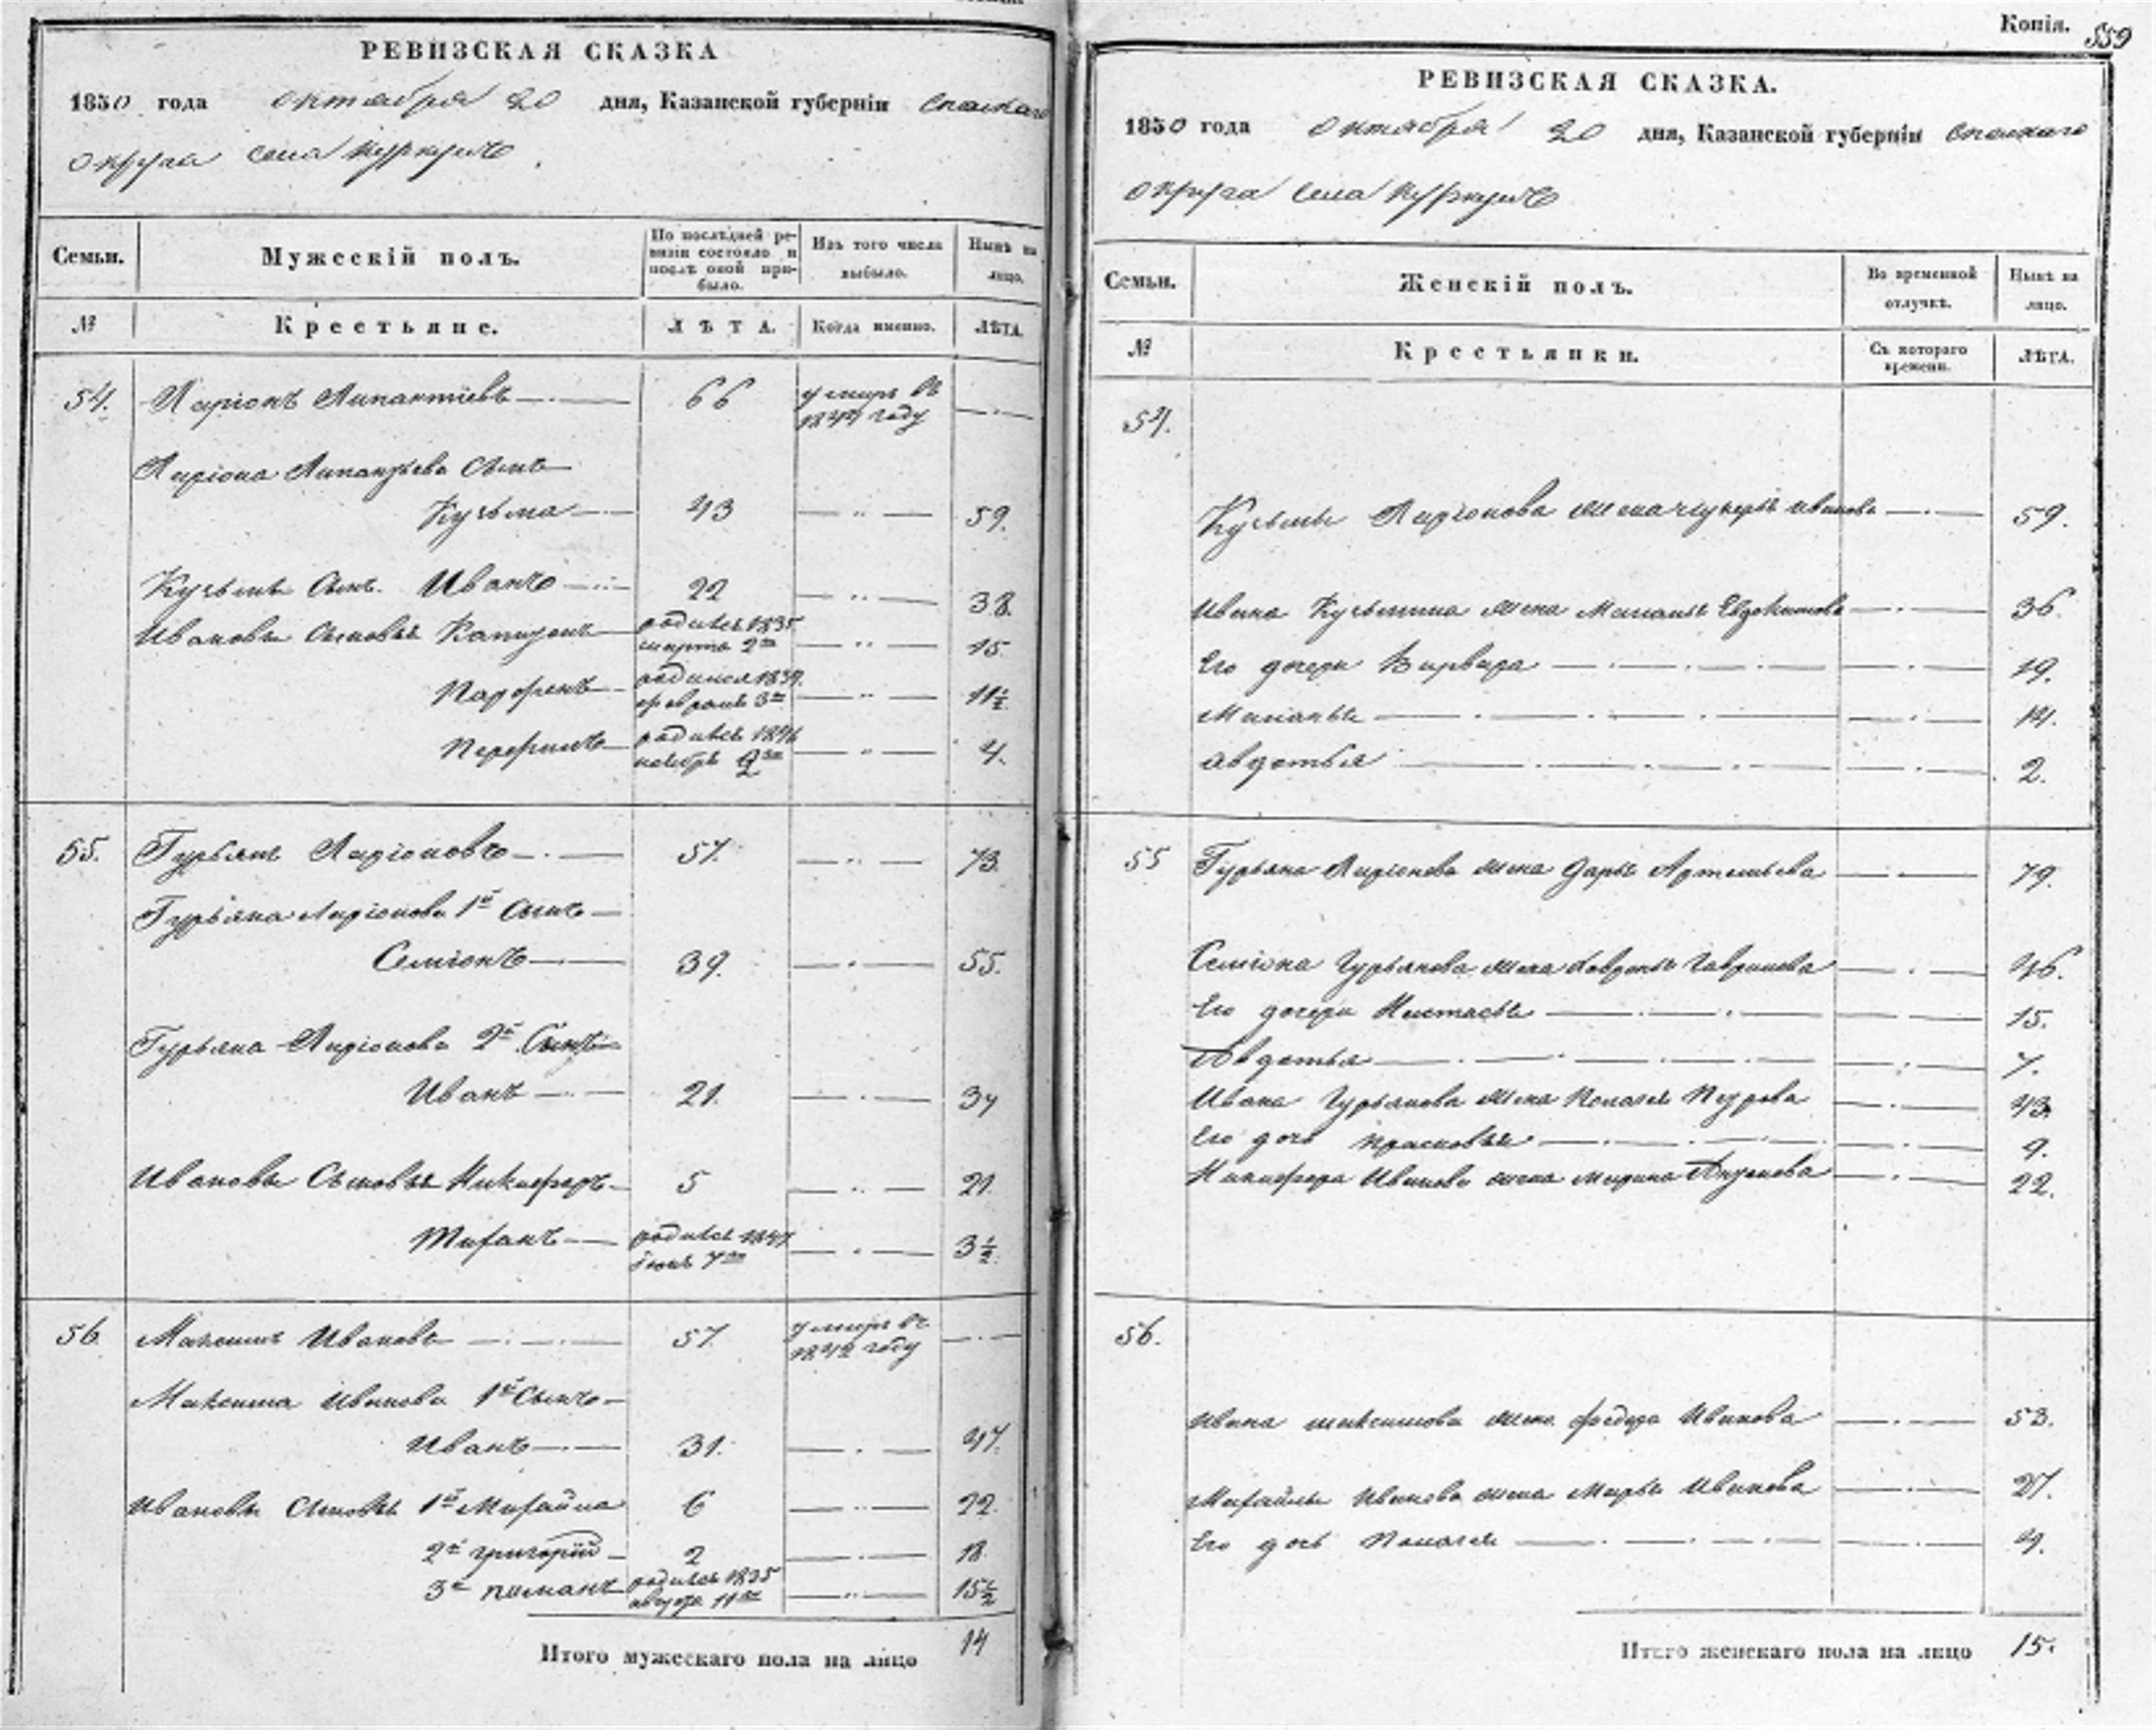 РЕВИЗСКАЯ СКАЗКА
1850 года октября 20 дня, Казанской губерніи Спаскаго
округа села
Семьи.
Мужескій полъ.
По послѣдней ре-
визіи состояло и
послѣ оной при-
было.
Изъ того числа
выбыло.
Нынѣ на
лицо.
№
Крестьяне.
ЛѢТА.
Когда именно.
ЛѢТА.
54. Ларіонъ 66 умиръ въ
году
Ларіона сынъ
Кузьма 43 59.
Кузьмы сынъ Иванъ 22 38.
Ивановы сыновья родился 1835
марта 2го 15
родился 1839
февраля 3го 11½
родился
ноября 4.
55. Гурьянъ Ларіоновъ 57. 73.
Гурьяна Ларіонова 1й сынъ
Семіонъ 39. 55.
Гурьяна Ларіонова 2й сынъ
Иванъ 21. 37
Ивановы сыновья Никифоръ 5 21.
родился 1847
7го 3½
56 Максимъ Ивановъ 57. умиръ въ
1842 году
Максима Иванова 1й сынъ
Иванъ 31. 47.
Ивановы сыновья 1й Михайла 6 22.
2й григорій 2 18
3й родился 1835
11го 15½
Итого мужескаго пола на лицо 14
Копія. 559
РЕВИЗСКАЯ СКАЗКА.
1850 года октября 20 дня, Казанской губерніи Спаскаго
округа села
Семьи.
Женскій полъ.
Во временной
отлучкѣ.
Нынѣ на
лицо.
№
Крестьянки.
Съ котораго
времени.
ЛѢТА.
54.
Кузьмы Ларіонова жена 59.
Ивана Кузьмина жена Евдокимова 36.
Его дочери Варвара 19.
14.
Авдотья 2.
55 Гурьяна Ларіонова жена Дарья Артемьева 79.
Семіона Гурьянова жена Гаврилова 46.
Его дочери Настасья 15.
Авдотья 7.
Ивана Гурьянова жена 43.
Его дочь Прасковья 9.
Никифора Иванова жена Марина 22.
56.
Ивана Максимова жена Иванова 53.
Михайлы Иванова жена Марья Иванова 27.
Его дочь 4.
Итого женскаго пола на лицо 15.